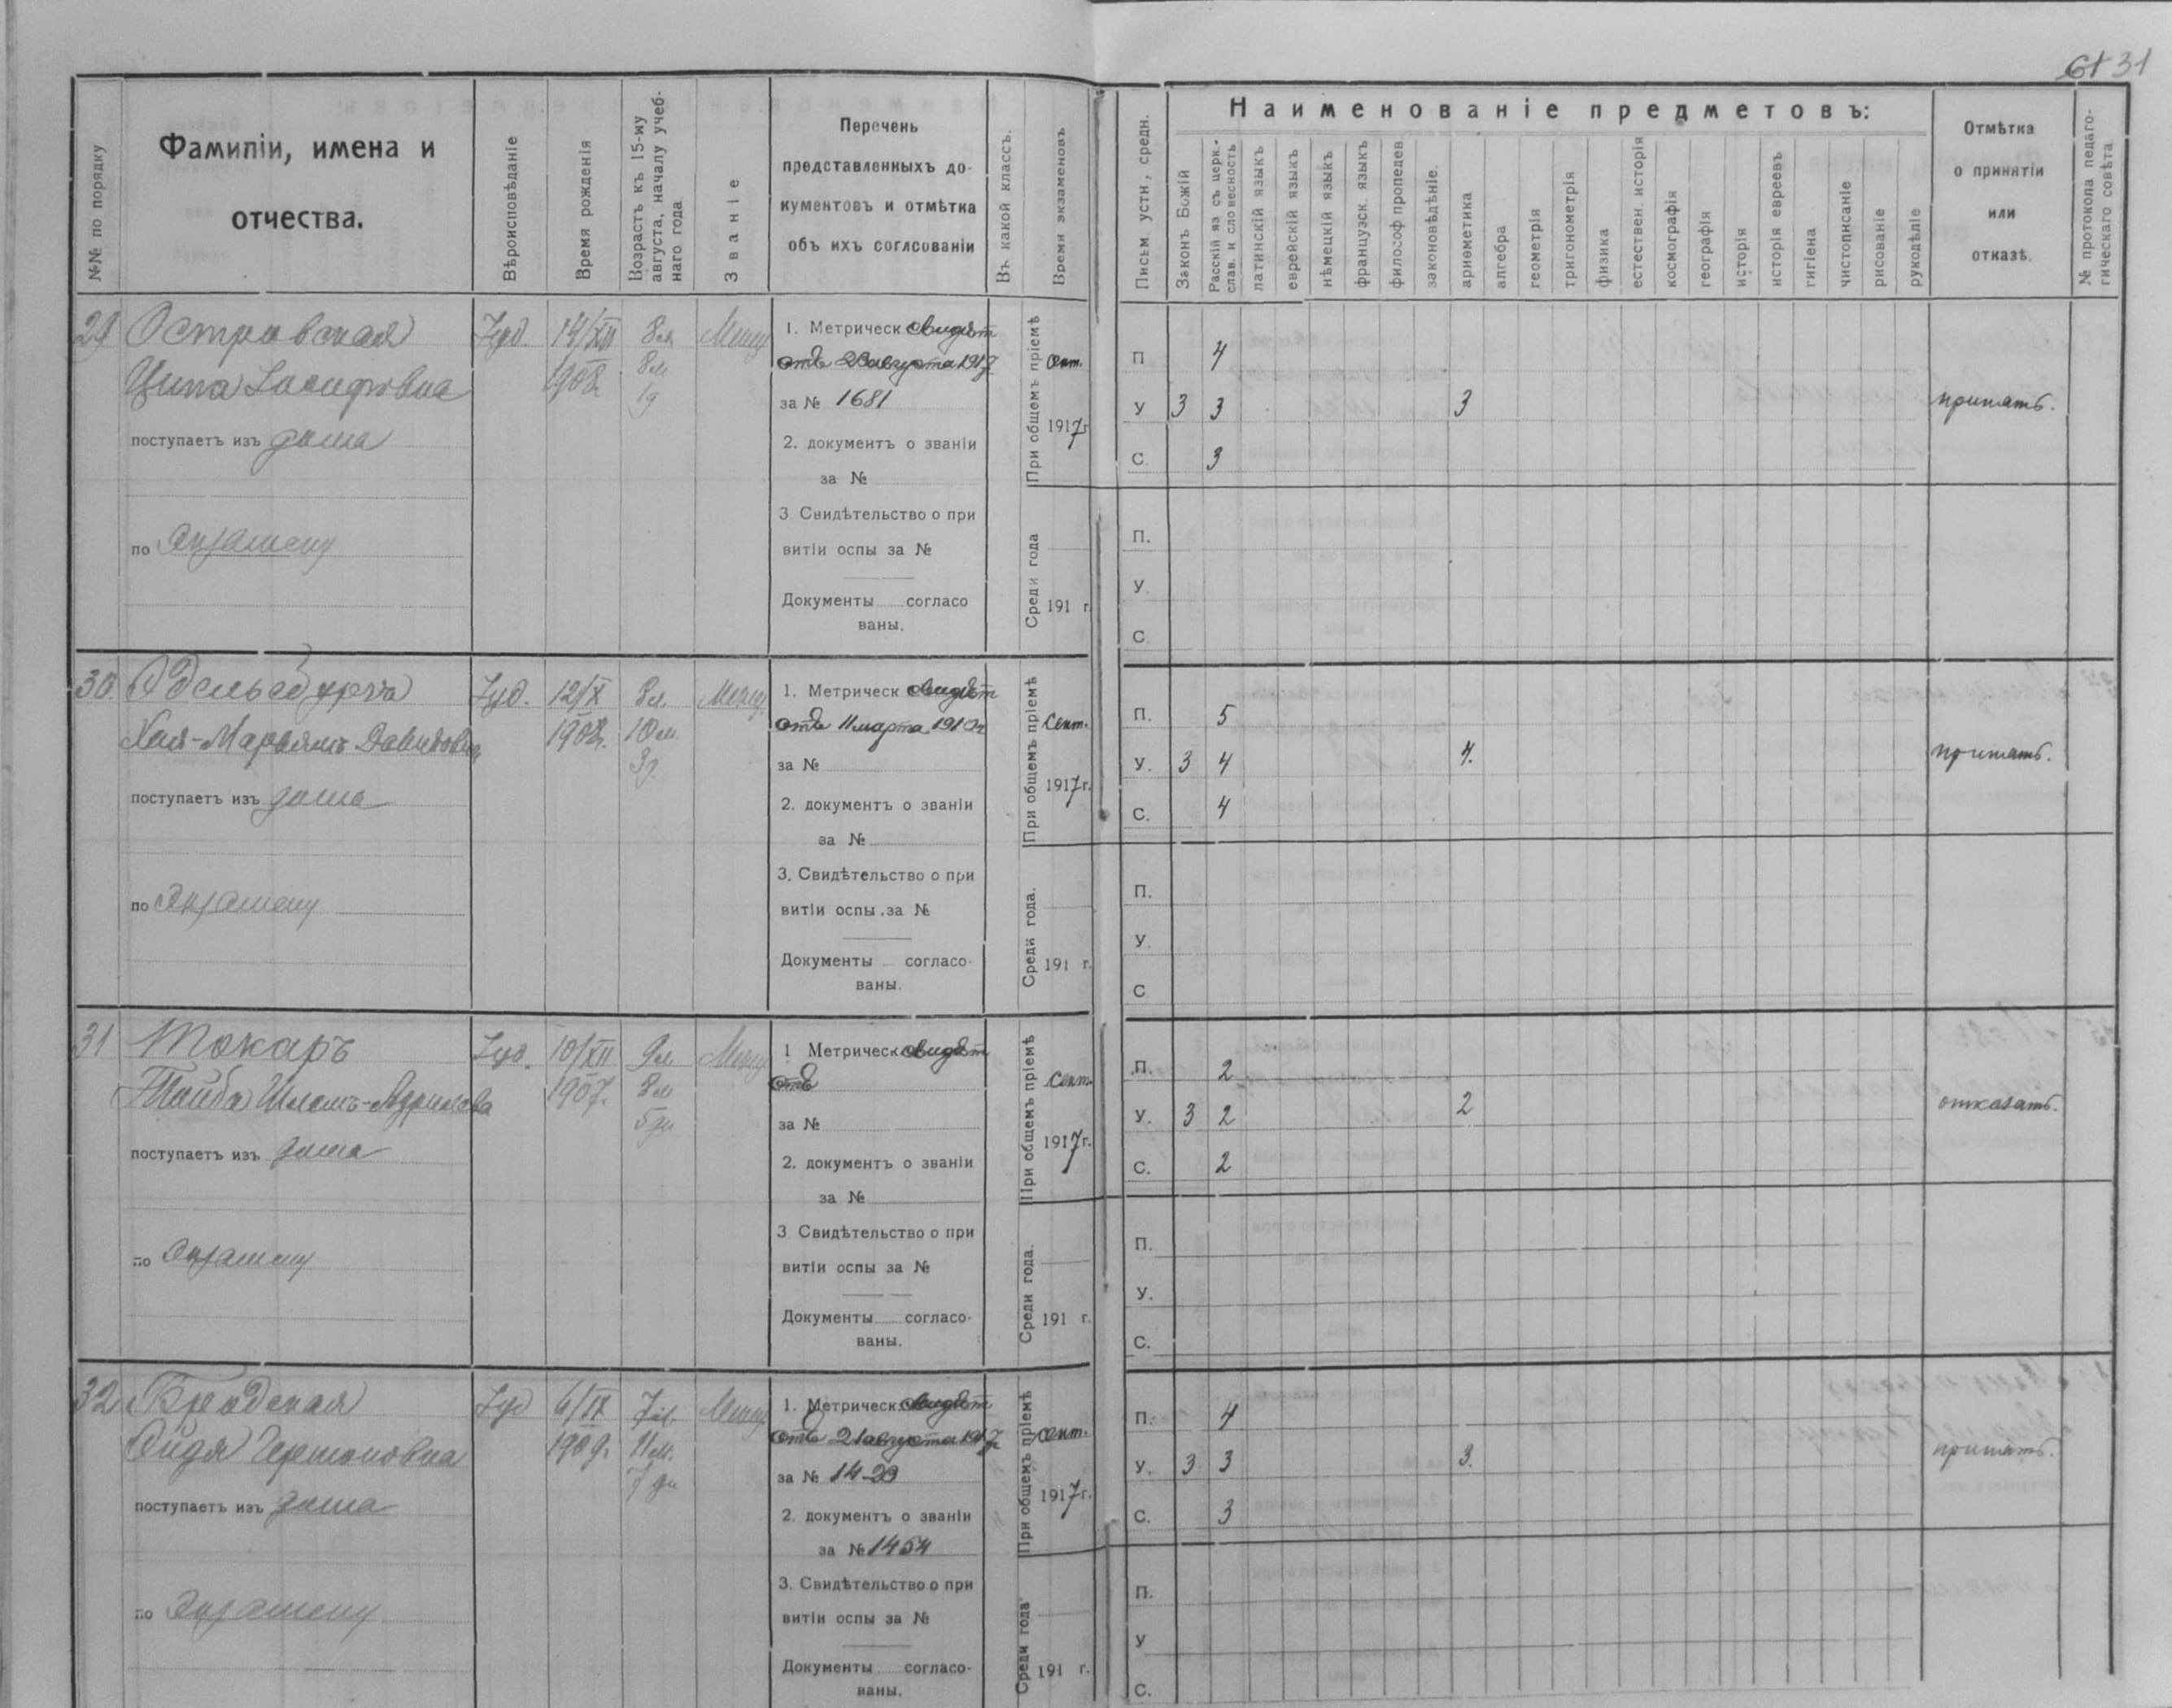 61 31
№№ по порядку
Фамиліи, имена и
отчества.
Вѣроисповѣданіе
Время рожденія
Возрастъ къ 15-му
августа, началу учеб-
наго года
Званіе
Перечень
представленныхъ до-
кументовъ и отмѣтка
объ ихъ соглсованіи
Въ какой классъ.
Время экзаменовъ
Письм. устн., средн.
Наименованіе предметовъ:
Законъ Божій
Расскій яз съ церк.-
слав. и словесность
латинскій языкъ
еврейскій языкъ
нѣмецкій языкъ
французск. языкъ
философ пропедев
законовѣдѣніе.
ариѳметика
алгебра
геометрія
тригонометрія
физика
естествен. исторія
космографія
географія
исторія
исторія евреевъ
гигіена
чистописаніе
рисованіе
рукодѣліе
Отмѣтка
о принятіи
или
отказѣ.
№ протокола педаго-
гическаго совѣта
29 Островская Іуд. 14/XII 8 л. Мещ.
Ципа Іосифовна 190 8 м.
поступаетъ изъ дома
по экзамену
1. Метрическ свидѣт
отъ августа 1917
за № 1681
2. документъ о званіи
за №
3 Свидѣтельство о при
витіи оспы за №
Документы согласо
ваны.
При общемъ пріемѣ
Сент.
1917 г
Среди года
191 г.
П 4
У 3 3 3
С. 3
принять.
П.
У.
С
30. Іуд. 12/X 8 л. Мещ.
Хая-Марьямъ Давидовна 190 10 м.
поступаетъ изъ дома
по экзамену
1. Метрическ. свидѣт
отъ 11 марта 191
за №
2. документъ о званіи
за №
3. Свидѣтельство о при
витіи оспы за №
Документы согласо-
ваны.
При общемъ пріемѣ
Сент.
1917 г.
Среди года.
191 г.
П. 5
У. 3 4 4.
С. 4
принять.
П.
У.
С
31 Токаръ Іуд. 10/XII 9 л Мещ
Тайба 1907. 8 м
поступаетъ изъ дома 5 дн
по экзамену
1 Метрическ свидѣт
отъ
за №
2. документъ о званіи
за №
3 Свидѣтельство о при
витіи оспы за №
Документы согласо-
ваны.
При общемъ пріемѣ
Сент.
1917 г.
Среди года.
191 г.
П. 2
У. 3 2 2
С. 2
отказать.
П.
У.
С.
32 Бродская Іуд 6/IX 7 л. Мещ
1909. 11 м.
поступаетъ изъ дома 7 дн
по экзамену
1. Метрическ. свидѣт
отъ 21 августа 1917
за № 1423
2. документъ о званіи
за № 1454
3. Свидѣтельство о при
витіи оспы за №
Документы согласо-
ваны.
При общемъ пріемѣ
Сент.
1917 г.
Среди года
191 г.
П. 4
У. 3 3 3.
С. 3
принять.
П.
У
С.